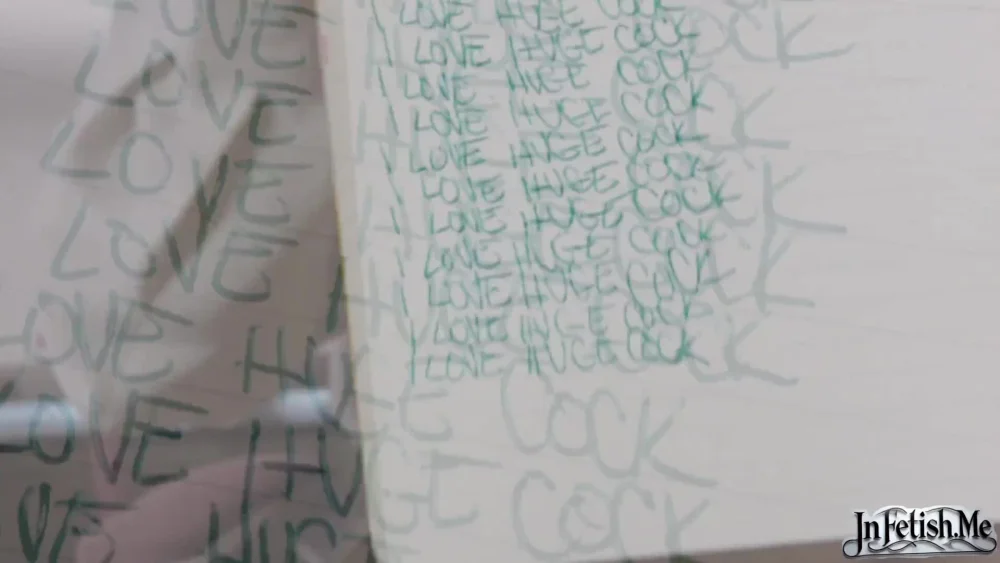 I LOVE HUGE COCK
I LOVE HUGE COCK
I LOVE HUGE COCK
I LOVE HUGE COCK
I LOVE HUGE COCK
I LOVE HUGE COCK
I LOVE HUGE COCK
I LOVE HUGE COCK
I LOVE HUGE COCK
I LOVE HUGE COCK
I LOVE HUGE COCK
LOVE
LOVE
LOVE
LOVE
LOVE HUGE COCK
LOVE HUGE COCK
InFetish.Me